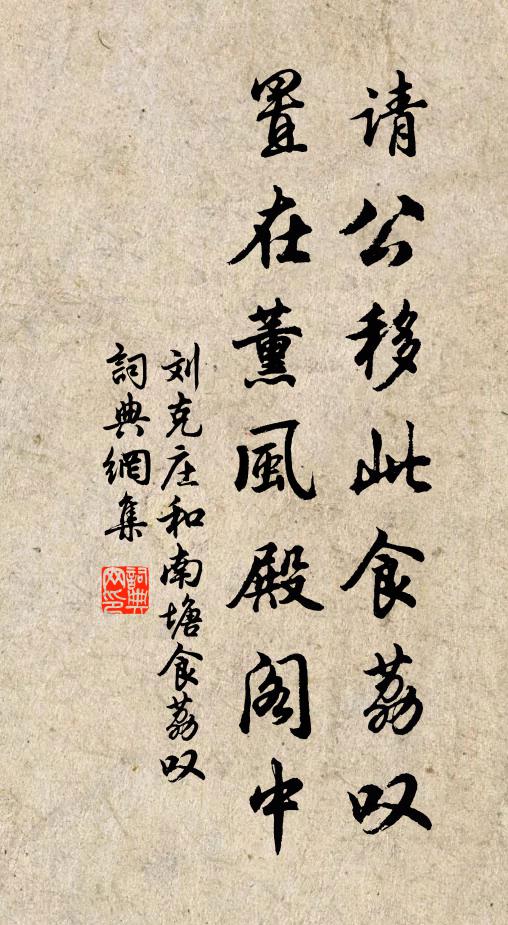 请公移此食荔叹
置在薰風殿阁中
刘克庄和南塘食荔叹
詞典網集
詞典網印